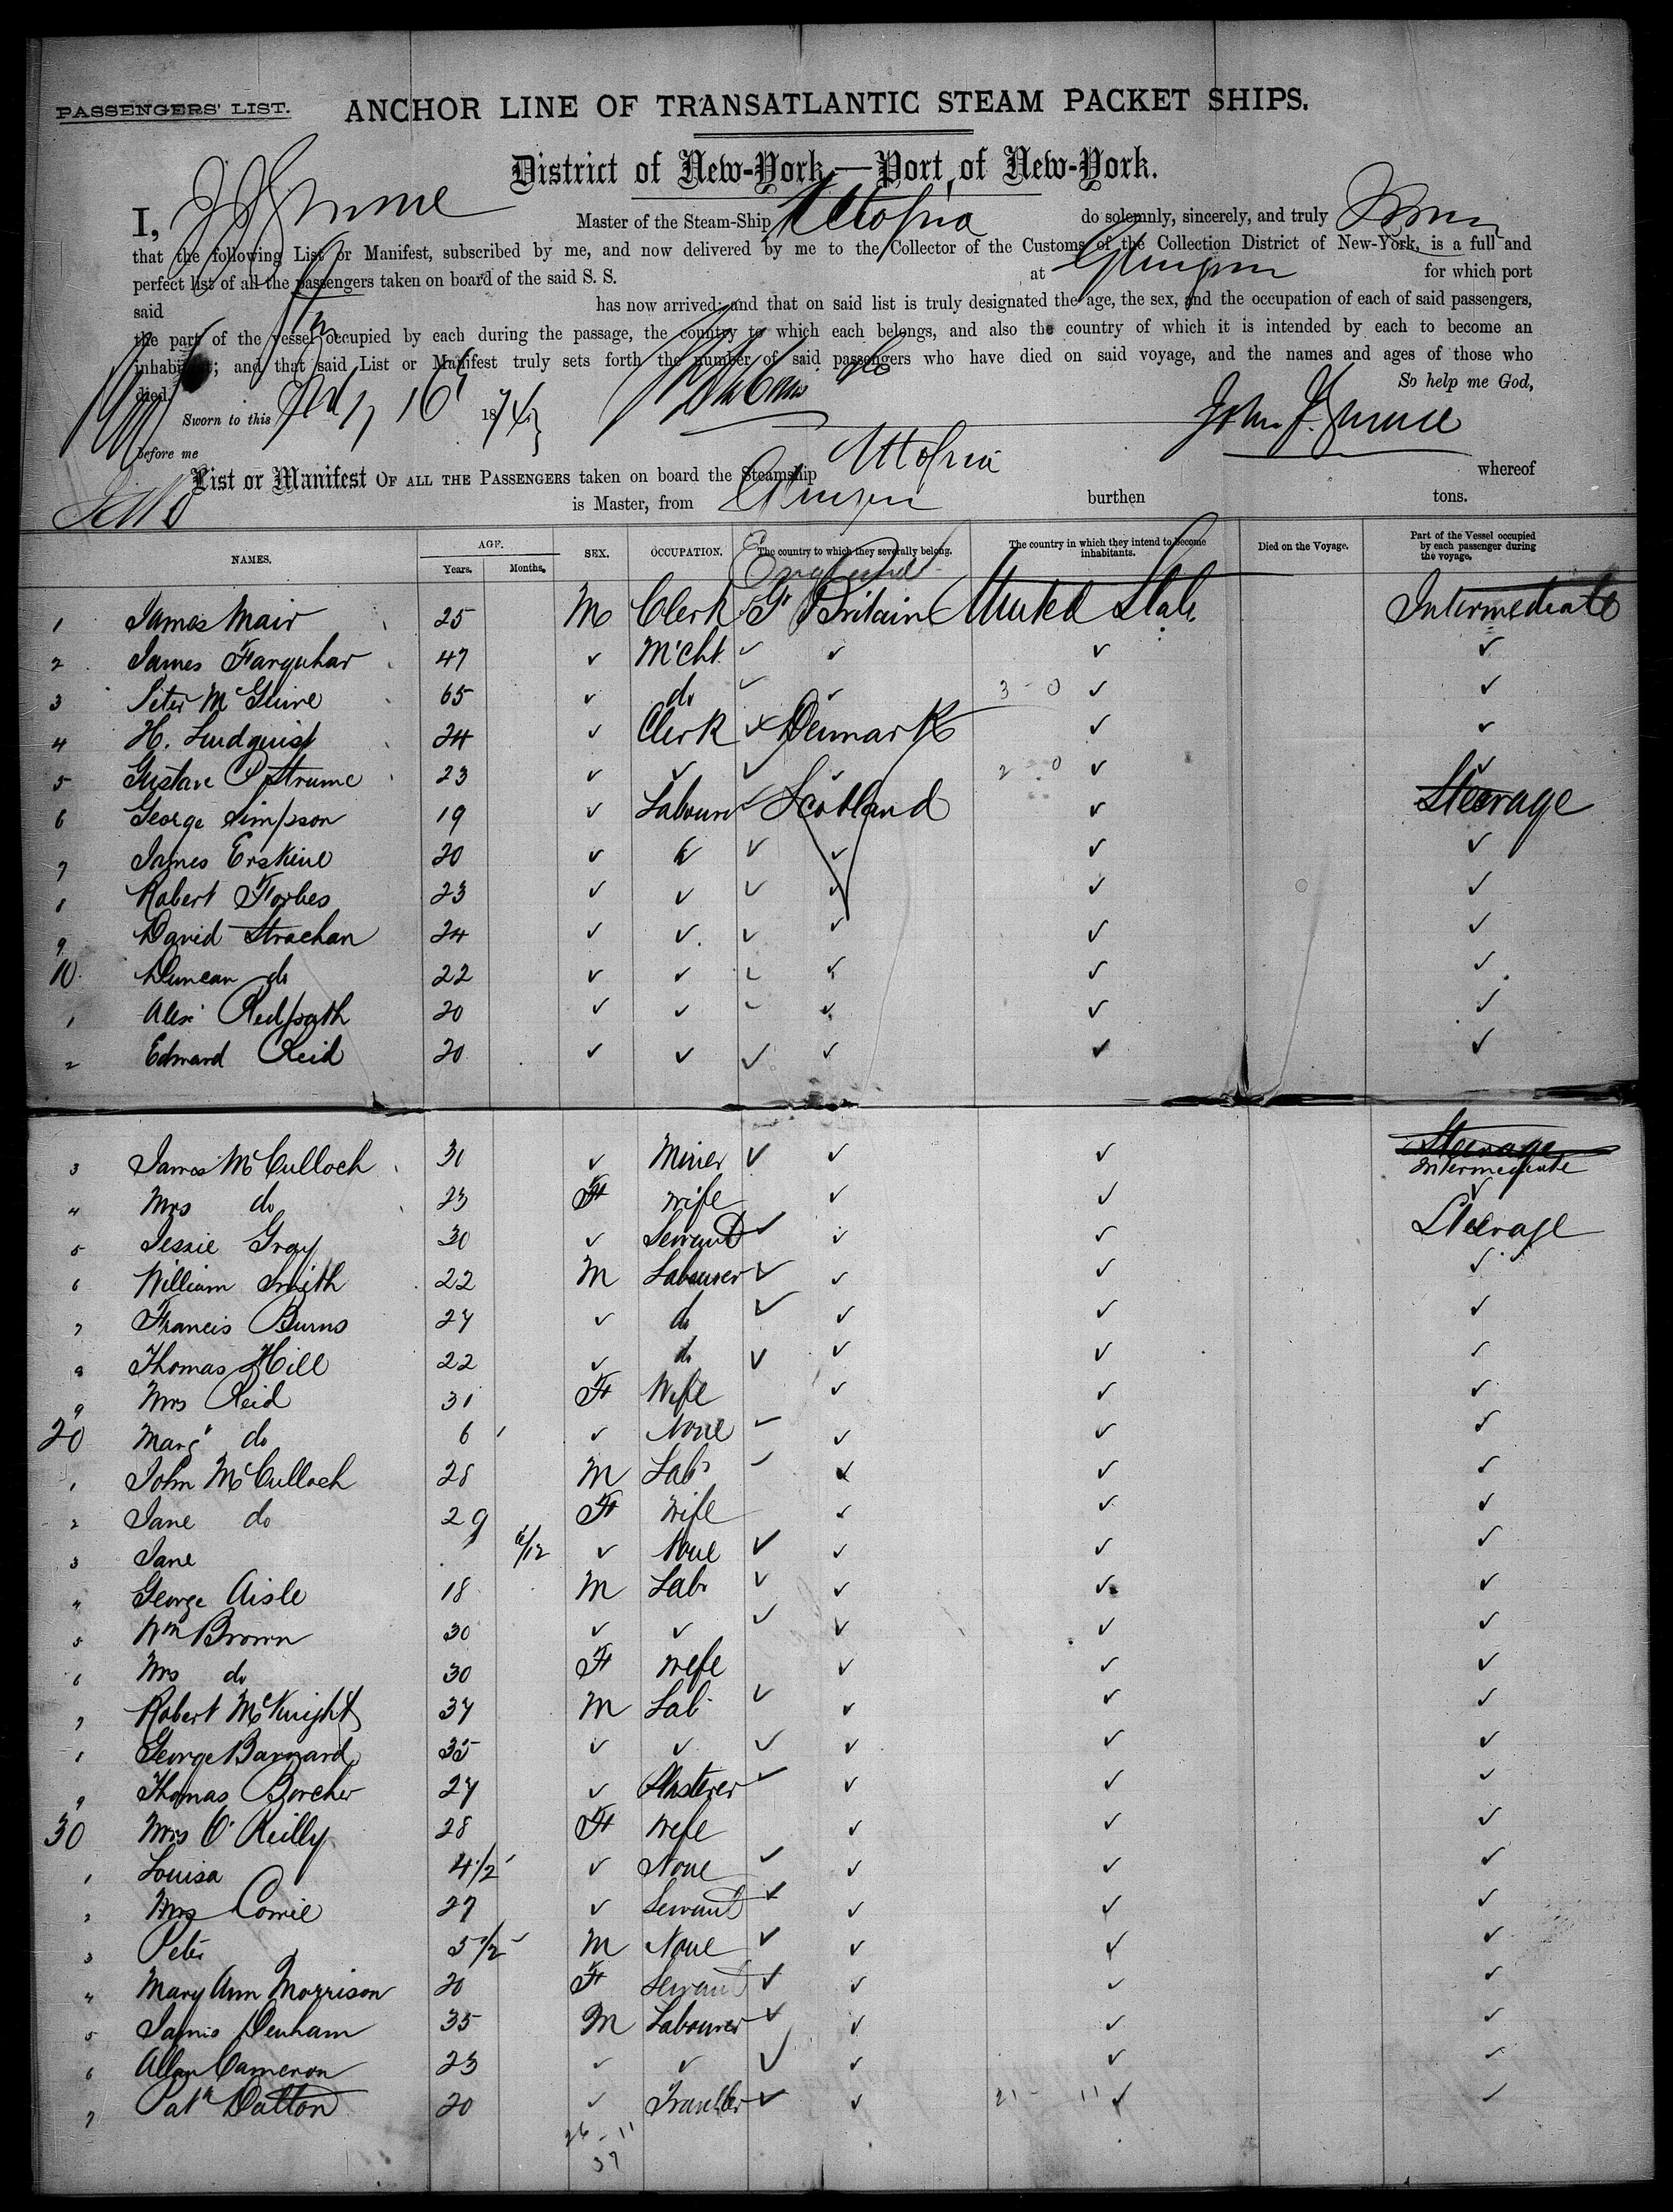 PASSENGERS' LIST.
ANCHOR LINE OF TRANSATLANTIC STEAM PACKET SHIPS.
District of New-York,—Port of New-York.
I, Master of the Steam-Ship Uttopia do solemnly, sincerely, and truly
that the following List or Manifest, subscribed by me, and now delivered by me to the Collector of the Customs of the Collection District of New-York, is a full and
perfect list of all the passengers taken on board of the said S. S. at for which port
said has now arrived; and that on said list is truly designated the age, the sex, and the occupation of each of said passengers,
the part of the vessel occupied by each during the passage, the country to which each belongs, and also the country of which it is intended by each to become an
inhabitant; and that said List or Manifest truly sets forth the number of said passengers who have died on said voyage, and the names and ages of those who
died. So help me God,
Sworn to this 16 1874
before me
List or Manifest OF ALL THE PASSENGERS taken on board the Steamship Uttopia whereof
is Master, from burthen tons.
NAMES. AGE. Years. Months. SEX. OCCUPATION. The country to which they severally belong. The country in which they intend to become inhabitants. Died on the Voyage. Part of the Vessel occupied by each passenger during the voyage.
England
1 James Mair 25 M Clerk Gt Britain United State Intermediate
2 James Farquhar 47 ✓ Mcht ✓ ✓ ✓ ✓
3 Peter McGuire 65 ✓ do ✓ ✓ 3 - 0 ✓ ✓
4 H. Lindquist 24 ✓ Clerk Denmark ✓ ✓
5 Gustave 23 ✓ ✓ ✓ ✓ 2 - 0 ✓ ✓
6 George Simpson 19 ✓ Labourer ✓ Scotland ✓ Steerage
7 James Erskine 20 ✓ ✓ ✓ ✓ ✓ ✓
8 Robert Forbes 23 ✓ ✓ ✓ ✓ ✓ ✓
9 David Strachan 24 ✓ ✓ ✓ ✓ ✓ ✓
10 Duncan do 22 ✓ ✓ ✓ ✓ ✓ ✓
1 Alex Redpath 20 ✓ ✓ ✓ ✓ ✓ ✓
2 Edward Reid 20 ✓ ✓ ✓ ✓ ✓ ✓
3 James McCulloch 31 ✓ Miner ✓ ✓ ✓ Steerage Intermediate
4 Mrs do 23 F wife ✓ ✓ ✓
5 Jessie Gray 30 ✓ Servant ✓ ✓ ✓ Steerage
6 William Smith 22 M Labourer ✓ ✓ ✓ ✓
7 Francis Burns 27 ✓ do ✓ ✓ ✓ ✓
8 Thomas Hill 22 ✓ do ✓ ✓ ✓ ✓
9 Mrs Reid 31 F Wife ✓ ✓ ✓
20 Margt do 6 ✓ None ✓ ✓ ✓ ✓
1 John McCulloch 28 M Labr ✓ ✓ ✓ ✓
2 Jane do 29 F wife ✓ ✓ ✓
3 Jane 6/12 ✓ None ✓ ✓ ✓ ✓
4 George Aisle 18 M Labr ✓ ✓ ✓ ✓
5 Wm Brown 30 ✓ ✓ ✓ ✓ ✓ ✓
6 Mrs do 30 F wife ✓ ✓ ✓
7 Robert McKnight 37 M Lab ✓ ✓ ✓ ✓
8 George Barnard 35 ✓ ✓ ✓ ✓ ✓ ✓
9 Thomas Borcher 27 ✓ Plasterer ✓ ✓ ✓ ✓
30 Mrs O'Reilly 28 F wife ✓ ✓ ✓
1 Louisa 4 1/2 ✓ None ✓ ✓ ✓ ✓
2 Mrs Cowie 27 ✓ Servant ✓ ✓ ✓ ✓
3 Peter 5 1/2 M None ✓ ✓ ✓ ✓
4 Mary Ann Morrison 20 F Servant ✓ ✓ ✓ ✓
5 James Denham 35 M Labourer ✓ ✓ ✓ ✓
6 Allan Cameron 23 ✓ ✓ ✓ ✓ ✓ ✓
7 Patk Dalton 20 ✓ Traveller ✓ ✓ 21 - 11 ✓ ✓
26 - 11
37